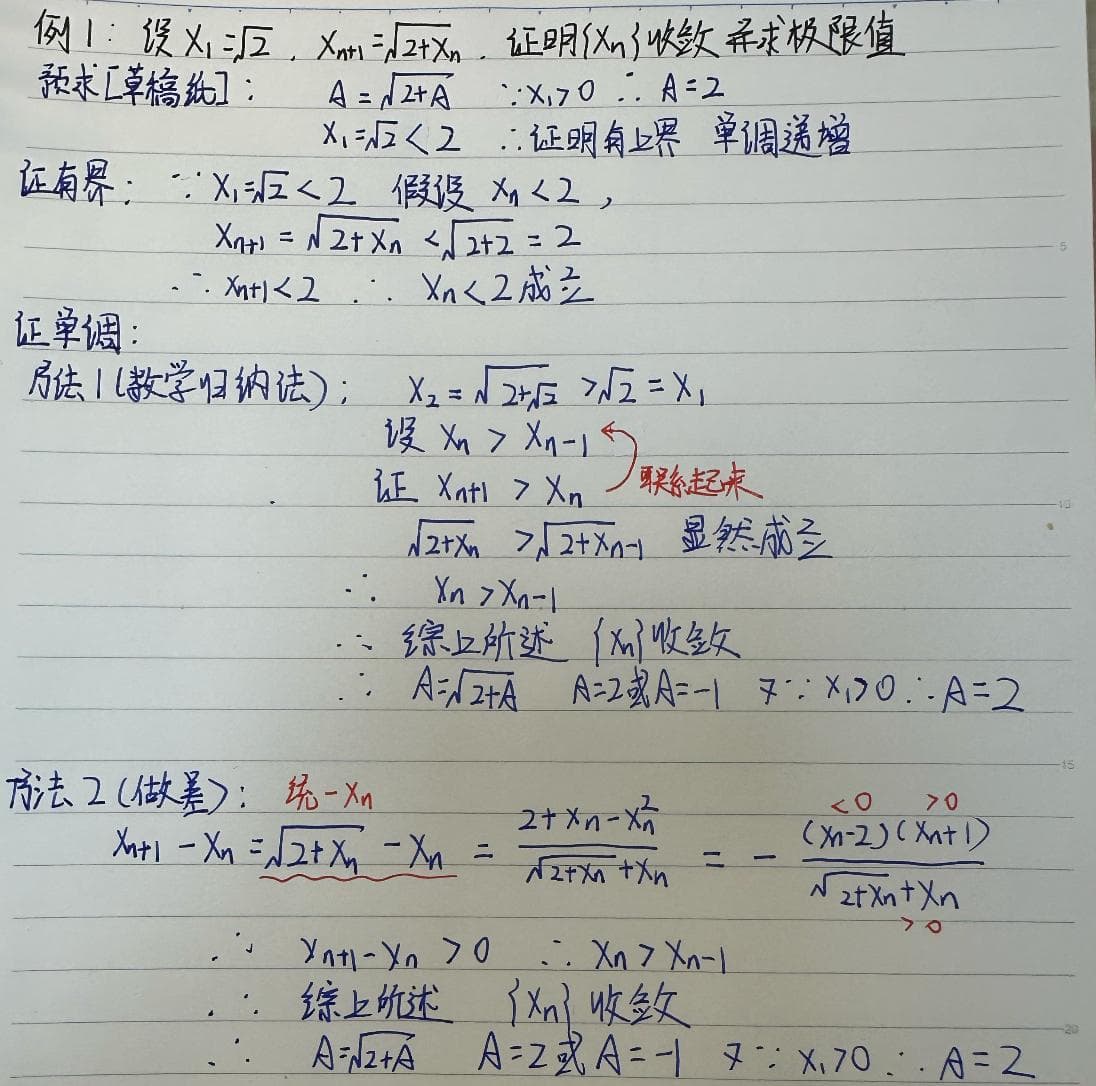 例1: 设 X₁=√2, Xₙ₊₁=√(2+Xₙ). 证明{Xₙ}收敛 并求极限值
预求[草稿纸]: A=√(2+A) ∵X₁>0 ∴A=2
X₁=√2<2 ∴证明有上界 单调递增
证有界: ∵X₁=√2<2 假设 Xₙ<2,
Xₙ₊₁=√(2+Xₙ)<√(2+2)=2
∴Xₙ₊₁<2 ∴Xₙ<2成立
5
证单调:
方法1(数学归纳法): X₂=√(2+√2)>√2=X₁
设 Xₙ>Xₙ₋₁
证 Xₙ₊₁>Xₙ 联系起来
10
√(2+Xₙ)>√(2+Xₙ₋₁) 显然成立
∴ Xₙ>Xₙ₋₁
∴ 综上所述 {Xₙ}收敛
∴ A=√(2+A) A=2或A=-1 又∵X₁>0∴A=2
15
方法2(做差): 统一Xₙ
Xₙ₊₁-Xₙ=√(2+Xₙ)-Xₙ=(2+Xₙ-Xₙ²)/(√(2+Xₙ)+Xₙ)=-(Xₙ-2)(Xₙ+1)/(√(2+Xₙ)+Xₙ) <0 >0 >0
∴ Xₙ₊₁-Xₙ>0 ∴Xₙ>Xₙ₋₁
∴ 综上所述 {Xₙ}收敛
20
∴ A=√(2+A) A=2或A=-1 又∵X₁>0∴A=2